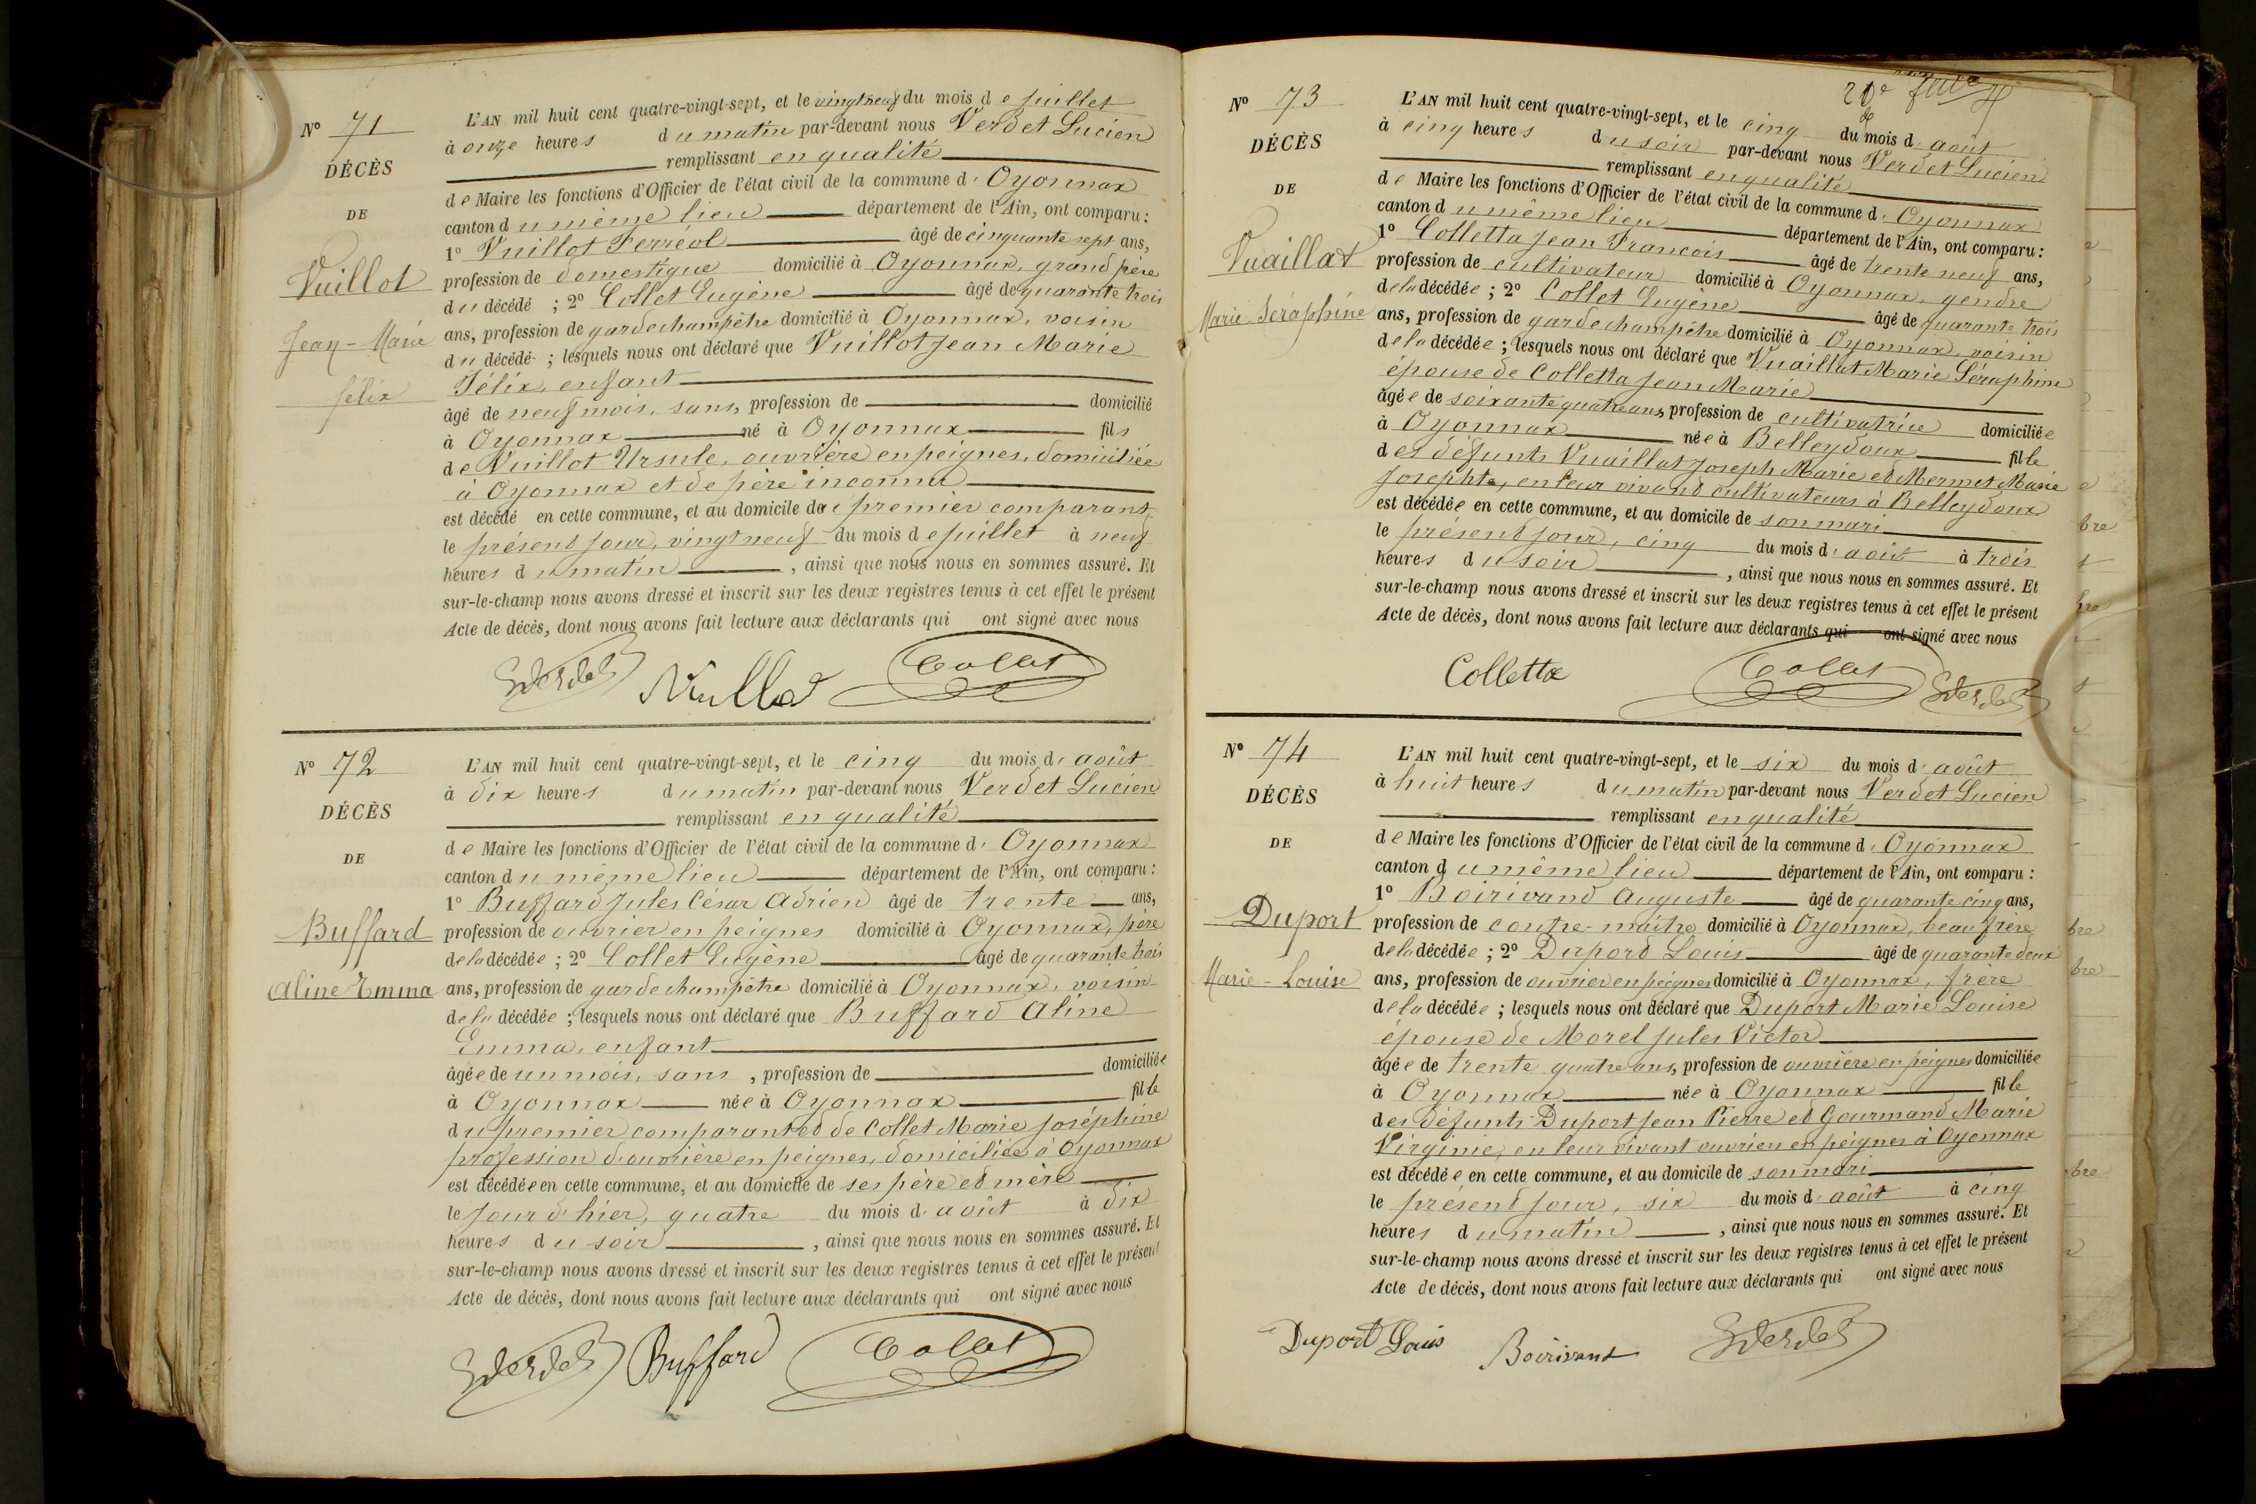 N° 71
DÉCÈS
DE
Vuillot
Jean-Marie
félix
L'AN mil huit cent quatre-vingt-sept, et le vingt neuf du mois de juillet
à onze heures du matin par-devant nous Verdet Lucien
remplissant en qualité
de Maire les fonctions d'Officier de l'état civil de la commune d'Oyonnax
canton du même lieu département de l'Ain, ont comparu :
1° Vuillot Ferréol âgé de cinquante sept ans,
profession de domestique domicilié à Oyonnax, grand père
du décédé ; 2° Collet Eugène âgé de quarante trois
ans, profession de garde champêtre domicilié à Oyonnax, voisin
du décédé ; lesquels nous ont déclaré que Vuillot Jean Marie
Félix, enfant
âgé de neuf mois, sans, profession de domicilié
à Oyonnax né à Oyonnax fils
de Vuillot Ursule, ouvrière en peignes, domiciliée
à Oyonnax et de père inconnu
est décédé en cette commune, et au domicile du premier comparant,
le présent jour, vingt neuf du mois de juillet à neuf
heures du matin, ainsi que nous nous en sommes assuré. Et
sur-le-champ nous avons dressé et inscrit sur les deux registres tenus à cet effet le présent
Acte de décès, dont nous avons fait lecture aux déclarants qui ont signé avec nous
Verdet Vuillot Collet
N° 72
DÉCÈS
DE
Buffard
Aline Emma
L'AN mil huit cent quatre-vingt-sept, et le cinq du mois d'août
à dix heures du matin par-devant nous Verdet Lucien
remplissant en qualité
de Maire les fonctions d'Officier de l'état civil de la commune d'Oyonnax
canton du même lieu département de l'Ain, ont comparu :
1° Buffard Jules César Adrien âgé de trente ans,
profession de ouvrier en peignes domicilié à Oyonnax, père
de la décédée ; 2° Collet Eugène âgé de quarante trois
ans, profession de garde champêtre domicilié à Oyonnax, voisin
de la décédée ; lesquels nous ont déclaré que Buffard Aline
Emma, enfant
âgée de un mois, sans, profession de domiciliée
à Oyonnax née à Oyonnax fille
du premier comparant et de Collet Marie Joséphine
profession d'ouvrière en peignes, domiciliée à Oyonnax
est décédée en cette commune, et au domicile de ses père et mère
le jour d'hier, quatre du mois d'août à dix
heures du soir, ainsi que nous nous en sommes assuré. Et
sur-le-champ nous avons dressé et inscrit sur les deux registres tenus à cet effet le présent
Acte de décès, dont nous avons fait lecture aux déclarants qui ont signé avec nous
Verdet Buffard Collet
N° 73
DÉCÈS
DE
Vuaillat
Marie Séraphine
L'AN mil huit cent quatre-vingt-sept, et le cinq du mois d'août
à cinq heures du soir par-devant nous Verdet Lucien
remplissant en qualité
de Maire les fonctions d'Officier de l'état civil de la commune d'Oyonnax
canton du même lieu département de l'Ain, ont comparu :
1° Colletta Jean François âgé de trente neuf ans,
profession de cultivateur domicilié à Oyonnax, gendre
de la décédée ; 2° Collet Eugène âgé de quarante trois
ans, profession de garde champêtre domicilié à Oyonnax, voisin
de la décédée ; lesquels nous ont déclaré que Vuaillat Marie Séraphine
épouse de Colletta Jean Marie
âgée de soixante quatre ans, profession de cultivatrice domiciliée
à Oyonnax née à Belleydoux fille
des défunts Vuaillat Joseph Marie et Mermet Marie
Josephte, en leur vivant cultivateurs à Belleydoux
est décédée en cette commune, et au domicile de son mari
le présent jour, cinq du mois d'août à trois
heures du soir, ainsi que nous nous en sommes assuré. Et
sur-le-champ nous avons dressé et inscrit sur les deux registres tenus à cet effet le présent
Acte de décès, dont nous avons fait lecture aux déclarants qui ont signé avec nous
Colletta Collet Verdet
N° 74
DÉCÈS
DE
Duport
Marie-Louise
L'AN mil huit cent quatre-vingt-sept, et le six du mois d'août
à huit heures du matin par-devant nous Verdet Lucien
remplissant en qualité
de Maire les fonctions d'Officier de l'état civil de la commune d'Oyonnax
canton du même lieu département de l'Ain, ont comparu :
1° Boirivand Auguste âgé de quarante cinq ans,
profession de contre-maître domicilié à Oyonnax, beau frère
de la décédée ; 2° Duport Louis âgé de quarante deux
ans, profession de ouvrier en peignes domicilié à Oyonnax, frère
de la décédée ; lesquels nous ont déclaré que Duport Marie Louise
épouse de Morel Jules Victor
âgée de trente quatre ans, profession de ouvrière en peignes domiciliée
à Oyonnax née à Oyonnax fille
des défunts Duport Jean Pierre et Gourmand Marie
Virginie, en leur vivant ouvriers en peignes à Oyonnax
est décédée en cette commune, et au domicile de son mari
le présent jour, six du mois d'août à cinq
heures du matin, ainsi que nous nous en sommes assuré. Et
sur-le-champ nous avons dressé et inscrit sur les deux registres tenus à cet effet le présent
Acte de décès, dont nous avons fait lecture aux déclarants qui ont signé avec nous
Duport Louis Boirivant Verdet